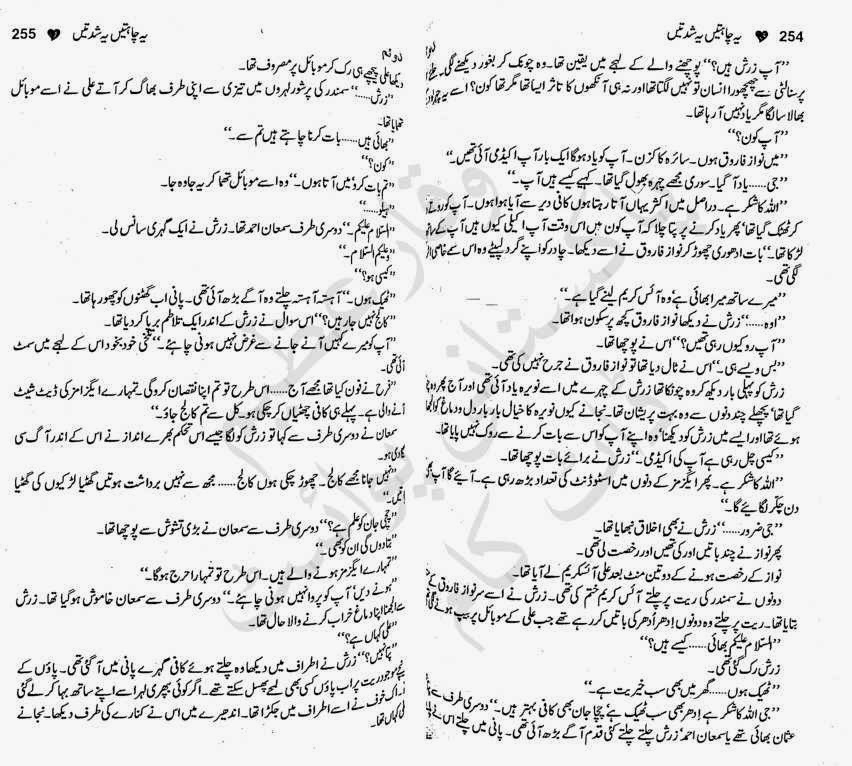 254 یہ چاہتیں یہ شدتیں
’’آپ زرش ہیں؟‘‘ پوچھنے والے کے لہجے میں یقین تھا۔ وہ چونک کر بغور دیکھنے لگی۔
پرسنالٹی سے چھچھورا انسان تو نہیں لگتا تھا اور نہ ہی آنکھوں کا تاثر ایسا تھا مگر تھا کون؟ اسے یہ چہرہ
بھالا سا لگا مگر یاد نہیں آ رہا تھا۔
’’آپ کون؟‘‘
’’میں نواز فاروق ہوں۔ سائرہ کا کزن۔ آپ کو یاد ہوگا ایک بار آپ اکیڈمی آئی تھیں۔‘‘
’’جی...... یاد آ گیا۔ سوری مجھے چہرہ بھول گیا تھا۔ کہیے کیسے ہیں آپ۔‘‘
’’اللہ کا شکر ہے۔ دراصل میں اکثر یہاں آتا رہتا ہوں کافی دیر سے آیا ہوا ہوں۔ آپ کو روتے
کر ٹھٹک گیا تھا‘ پھر یاد کرنے پر پتا چلا کہ آپ کون ہیں اس وقت آپ اکیلی کیوں ہیں آپ کے ساتھ
لڑکا تھا۔‘‘ بات ادھوری چھوڑ کر نواز فاروق نے اسے دیکھا۔ چادر کو اپنے گرد لپیٹے وہ اس سے خاصی
لگی تھی۔
’’میرے ساتھ میرا بھائی ہے‘ وہ آئس کریم لینے گیا ہے۔‘‘
’’اوہ......‘‘ زرش نے دیکھا نواز فاروق کچھ پرسکون ہوا تھا۔
’’آپ رو کیوں رہی تھیں؟‘‘ اس نے پوچھا تھا۔
’’بس ویسے ہی۔‘‘ اس نے ٹال دیا تھا تو نواز فاروق نے جرح نہیں کی تھی۔
زرش کو پہلی بار دیکھ کر وہ چونکا تھا زرش کے چہرے میں اسے نویرہ یاد آئی تھی اور آج پھر وہ
گیا تھا‘ پچھلے چند دنوں سے وہ بہت پریشان تھا۔ نجانے کیوں نویرہ کا خیال بار بار دل و دماغ کو الجھا
ہوئے تھا اور ایسے میں زرش کو دیکھنا‘ وہ اپنے آپ کو اس سے بات کرنے سے روک نہیں پایا تھا۔
’’کیسی چل رہی ہے آپ کی اکیڈمی۔‘‘ زرش نے برائے بات پوچھا تھا۔
’’اللہ کا شکر ہے۔ پھر ایگزمز کے دنوں میں اسٹوڈنٹ کی تعداد بڑھ رہی ہے۔ آیئے گا آپ
دن چکر لگائیے گا۔‘‘
’’جی ضرور......‘‘ زرش نے بھی اخلاق نبھایا تھا۔
پھر نواز نے چند باتیں اور کی تھیں اور رخصت لی تھی۔
نواز کے رخصت ہونے کے دو تین منٹ بعد علی آئسکریم لے آیا تھا۔
دونوں نے سمندر کی ریت پر چلتے آئس کریم ختم کی تھی۔ زرش نے اسے سر نواز فاروق کے
بتایا تھا۔ ریت پر چلتے وہ دونوں اِدھر اُدھر کی باتیں کر رہے تھے جب علی کے موبائل پر بیپ ہونے
’’السلام علیکم بھائی...... کیسے ہیں؟‘‘
زرش رک گئی تھی۔
’’ٹھیک ہوں...... گھر میں بھی سب خیریت ہے۔‘‘
’’جی اللہ کا شکر ہے اِدھر بھی سب ٹھیک ہے‘ چچا جان بھی کافی بہتر ہیں۔‘‘ دوسری طرف سے
عثمان بھائی تھے یا سمعان احمد‘ زرش چلتے چلتے کئی قدم آگے بڑھ آئی تھی۔ پانی میں چلتے اس نے
255 یہ چاہتیں یہ شدتیں
دیکھا علی پیچھے ہی رک کر موبائل پر مصروف تھا۔
’’زرش......‘‘ سمندر کی پرشور لہروں میں تیزی سے اپنی طرف بھاگ کر آتے علی نے اسے موبائل
تھمایا تھا۔
’’بھائی ہیں...... بات کرنا چاہتے ہیں تم سے۔‘‘
’’کون؟‘‘
’’تم بات کرو‘ میں آتا ہوں۔‘‘ وہ اسے موبائل تھما کر یہ جا وہ جا۔
’’ہیلو......‘‘
’’السلام علیکم۔‘‘ دوسری طرف سمعان احمد تھا۔ زرش نے ایک گہری سانس لی۔
’’وعلیکم السلام۔‘‘
’’کیسی ہو؟‘‘
’’ٹھیک ہوں۔‘‘ آہستہ آہستہ چلتے وہ آگے بڑھ آئی تھی۔ پانی اب گھٹنوں کو چھو رہا تھا۔
’’کالج نہیں جا رہیں؟‘‘ اس سوال نے زرش کے اندر ایک تلاطم برپا کر دیا تھا۔
’’آپ کو میرے کہیں آنے جانے سے غرض نہیں ہونی چاہئے۔‘‘ تلخی خود بخود اس کے لہجے میں سمٹ
آئی تھی۔
’’فرح نے فون کیا تھا مجھے آج...... اس طرح تو تم اپنا نقصان کرو گی۔ تمہارے ایگزامز کی ڈیٹ شیٹ
آنے والی ہے۔ پہلے ہی کافی چھٹیاں کر چکی ہو۔ کل سے تم کالج جاؤ۔‘‘
سمعان نے دوسری طرف سے کہا تو زرش کو لگا جیسے اس تحکم بھرے انداز نے اس کے اندر آگ سی
لگا دی ہو۔
’’نہیں جانا مجھے کالج۔ چھوڑ چکی ہوں کالج...... مجھ سے نہیں برداشت ہوتیں گھٹیا لڑکیوں کی گھٹیا
باتیں۔‘‘
’’چچی جان کو علم ہے؟‘‘ دوسری طرف سے سمعان نے بڑی تشویش سے پوچھا تھا۔
’’بتا دوں گی ان کو بھی۔‘‘
’’تمہارے ایگزمز ہونے والے ہیں۔ اس طرح تو تمہارا حرج ہوگا۔‘‘
’’ہونے دیں‘ آپ کو پروا نہیں ہونی چاہئے۔‘‘ دوسری طرف سے سمعان خاموش ہو گیا تھا۔ زرش
سے الجھنا اپنا دماغ خراب کرنے والا حال تھا۔
’’علی کہاں ہے؟‘‘
’’پتا نہیں؟‘‘ زرش نے اطراف میں دیکھا وہ چلتے ہوئے کافی گہرے پانی میں آ گئی تھی۔ پاؤں کے
نیچے موجود ریت پر اب پاؤں کسی بھی لمحے پھسل سکتے تھے۔ اگر کوئی بپھری لہر اسے اپنے ساتھ بہا کر لے گئی
تو۔ اک خوف نے اسے اطراف میں جکڑا تھا۔ اندھیرے میں اس نے کنارے کی طرف دیکھا۔ نجانے
علی کہاں تھا۔